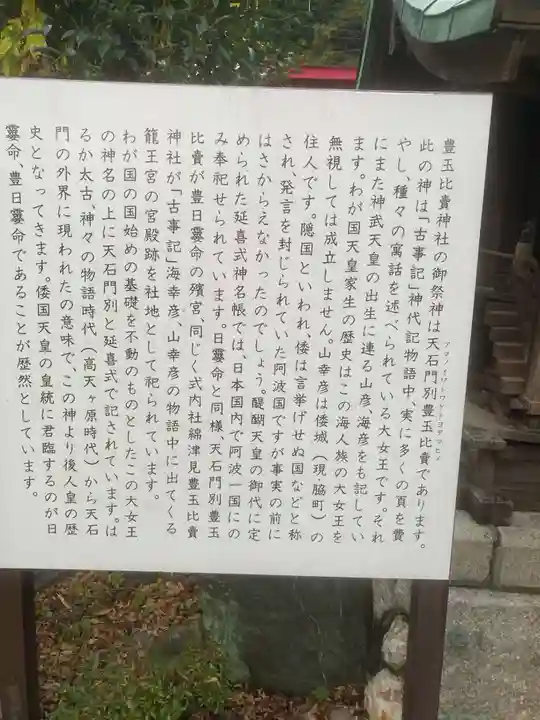 豊玉比賣神社の御祭神は天石門別豊玉比貴であります。
アマノイワトワケトヨタマヒメ
此の神は「古事記」神代記物語中、実に多くの頁を費
やし、種々の寓話を述べられている大女王です。それ
にまた神武天皇の出生に連る山彦、海彦をも記してい
ます。わが国天皇家生の歴史はこの海人族の大女王を
無視しては成立しません。山幸彦は倭城(現・脇町)の
住人です。隠国といわれ、倭は言挙げせぬ国などと称
され、発言を封じられていた阿波国ですが事実の前に
はさからえなかったのでしょう。醍醐天皇の御代に定
められた延喜式神名帳では、日本国内で阿波一国にの
み奉祀せられています。日霊命と同様、天石門別豊玉
比貴が豊日霊命の殯宮、同じく式内社綿津見豊玉比賣
神社が「古事記」海幸彦、山幸彦の物語中に出てくる
龍王宮の宮殿跡を社地として祀られています。
わが国の国始めの基礎を不動のものとしたこの大女王
の神名の上に天石門別と延喜式で記されています。は
るか太古、神々の物語時代(高天ヶ原時代)から天石
門の外界に現われたの意味で、この神より後人皇の歴
史となってきます。倭国天皇の皇統に君臨するのが日
霊命、豊日霊命であることが歴然としています。